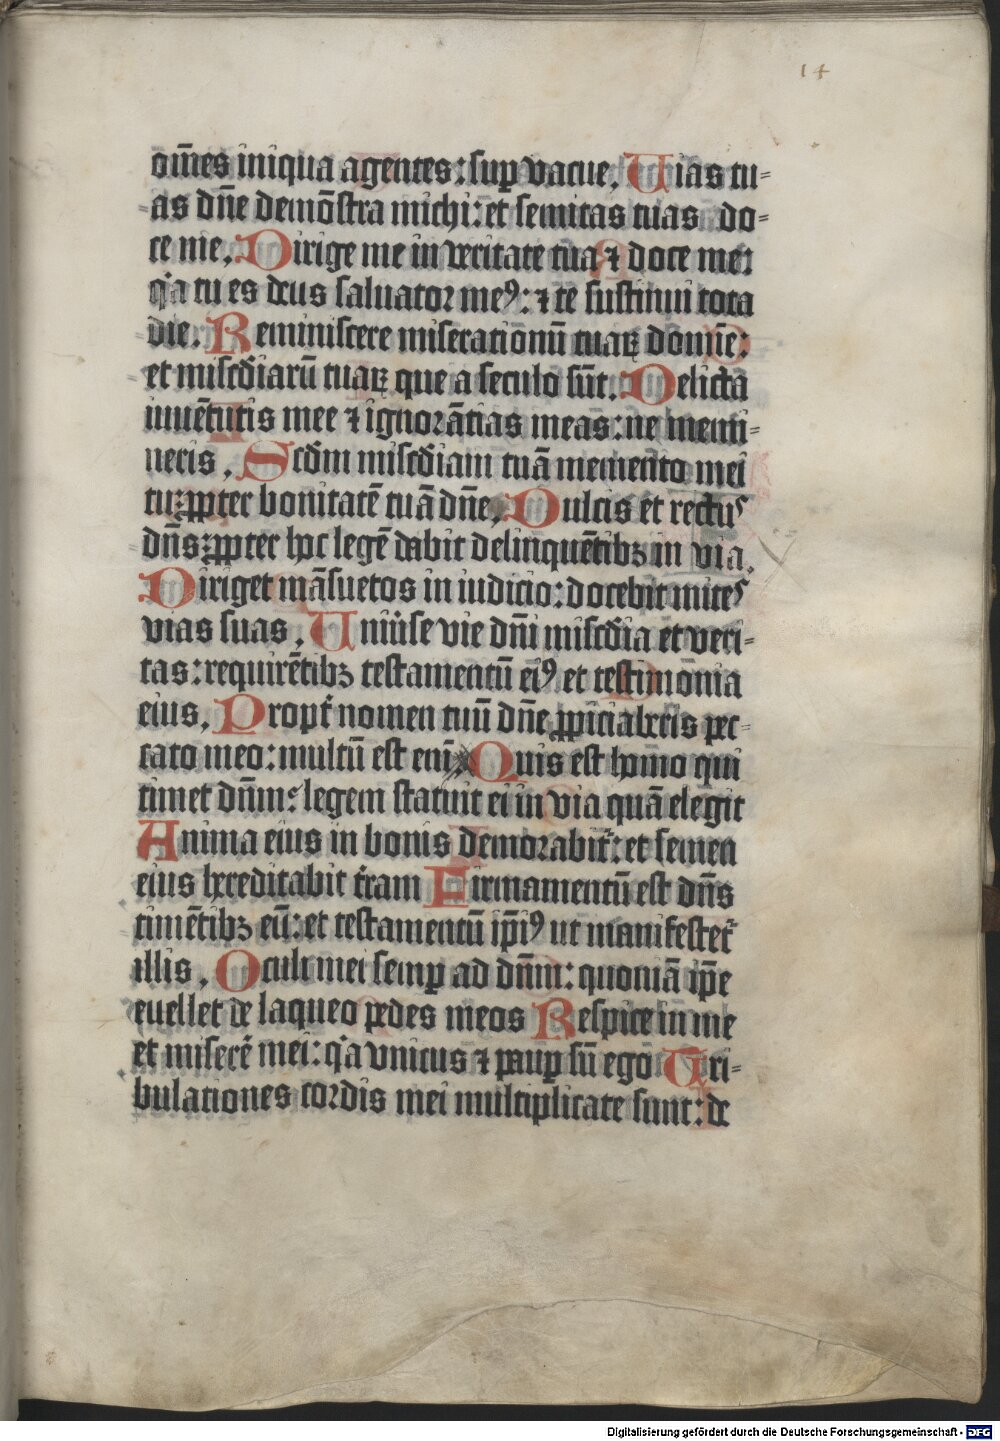 14
om̄es iniqua agentes: suꝑ vacue. Uias tu-
as dn̄e demōstra michi: et semitas tuas do-
ce me. Dirige me in veritate tua ⁊ doce me:
qͣa tu es deus saluator meꝰ: ⁊ te sustinui tota
die. Reminiscere miserationū tuaꝝ domīe:
et miſcd̄iarū tuaꝝ que a seculo sūt. Delicta
iuuētutis mee ⁊ ignorātias meas: ne memi-
neris. Scd̄m misc̄diam tuā memento mei
tu: ꝓpter bonitatē tuā dn̄e. Dulcis et rectus
dn̄s: ꝓpter hoc legē dabit delinquētibꝫ in via.
Diriget māsuetos in iudicio: docebit mites
vias suas. Uniūse vie dn̄i misc̄dia et veri-
tas: requirētibꝫ testamentū eiꝰ et testimōnia
eius. Propt̄ nomen tuū dn̄e ꝓpiciaberis pec-
cato meo: multū est enī Quis est homo qui
timet dn̄m: legem statuit ei in via quā elegit
Anima eius in bonis demorabit᷑: et semen
eius hereditabit t̄ram Firmamentū est dn̄s
timētibꝫ eū: et testamentū ip̄iꝰ ut manifestet᷑
illis. Oculi mei semꝑ ad dn̄m: quoniā ip̄e
euellet de laqueo pedes meos Respice in me
et miserē mei: qͣa vnicus ⁊ pauꝑ sū ego Tri-
bulationes cordis mei multiplicate sunt: de
Digitalisierung gefördert durch die Deutsche Forschungsgemeinschaft - DFG